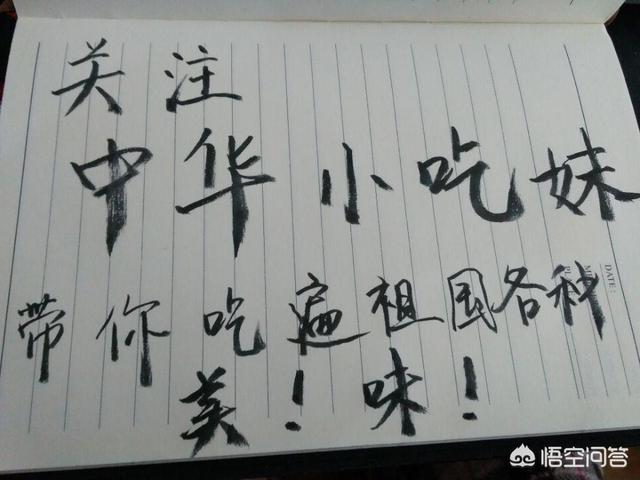 关注
中华小吃妹
带你吃遍祖国各种
美！味！
DATE:
悟空问答